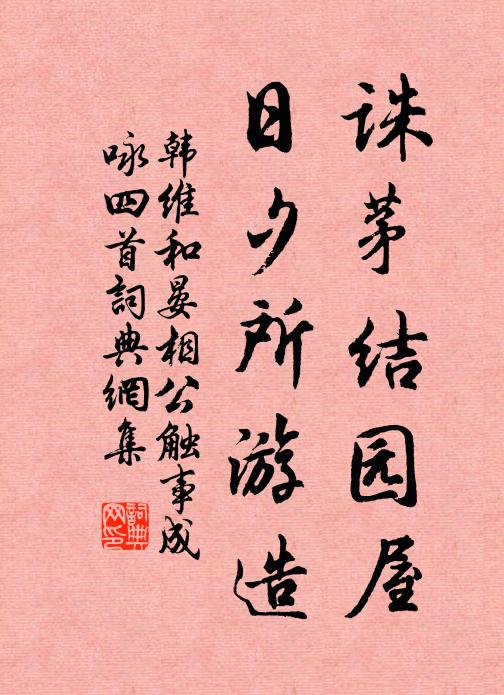 诛茅结园屋
日夕所游造
韩维和晏相公触事成
咏四首詞典網集
詞典
网印